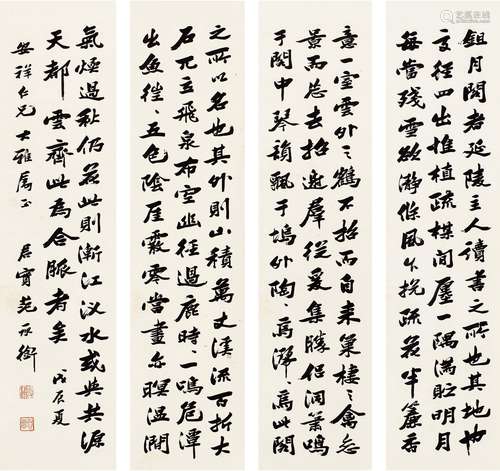 鉏月閣者延陵主人讀書之所也其地也
交徑四出惟植疏楳間屋一隅滿貯明月
每當殘雪欲瀞條風乍挽疏花半簾香
意一室雲外之鶴不招而自来巢棲之禽忘
景而忘去招邀羣從爰集勝侶洞簫鳴
于閣中琴韻飄于塢外陶焉瀞焉此閣
之所以名也其外則山積萬丈溪流百折大
石兀立飛泉布空幽徑過鹿時一鳴危潭
出魚往五色陰厓霰零當晝亦暝温閣
氣煙過秋仍花此則漸江汊水或與共源
天都雲齊此為合脈者矣 戊辰夏
安祥仁兄大雅属正 君實范承衡